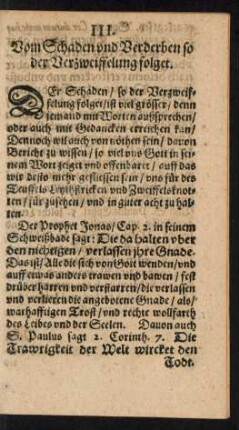 III.
Vom Schaden vnd Verderben so
der Verzweiffelung folget.
DEr Schaden / so der Verzweif-
felung folget / ist viel grösser / denn
jemand mit Worten außsprechen /
oder auch mit Gedancken erreichen kan /
Dennoch wil auch von nöthen sein / davon
Bericht zu wissen / so viel vns Gott in sei-
nem Wort zeiget vnd offenbaret / auff das
wir desto mehr gefliessen sein / vns für des
Teuffels Stricken vnd Zweiffelsknot-
ten / für zusehen / vnd in guter acht zu hal-
ten.
Der Prophet Jonas / Cap. 2. in seinem
Schweißbade sagt: Die da halten vber
den nichtigen / verlassen jhre Gnade.
Das ist / Alle die sich von Gott wenden / vnd
auff etwas anders trawen vnd bawen / fest
drüber harren vnd verstarren / die verlassen
vnd verlieren die angebotene Gnade / als /
warhafftigen Trost / vnd rechte wolfarth
des Leibes vnd der Seelen. Dauon auch
S. Paulus sagt 2. Corinth. 7. Die
Trawrigkeit der Welt wircket den
Todt.